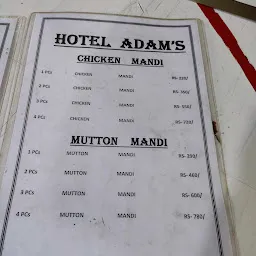 HOTEL ADAM'S
CHICKEN MANDI
1 PCs CHICKEN MANDI
2 PCs CHICKEN MANDI
3 PCs CHICKEN MANDI
4 PCs CHICKEN MANDI
MUTTON MANDI
1 PCs MUTTON MANDI
2 PCs MUTTON MANDI RS- 460/
3 PCs MUTTON MANDI RS- 600/
4 PCs MUTTON MANDI RS- 780/